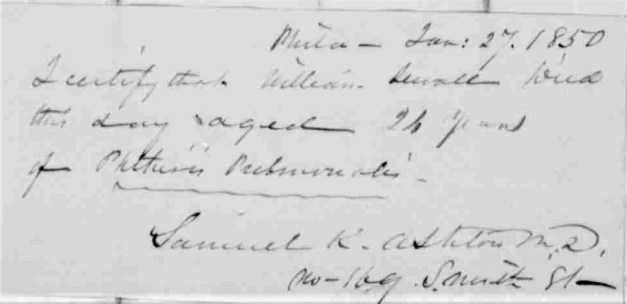 Phila - Jan: 27. 1850
I certify that William Sewall Died
this day aged 26 years
of Phthisis Pulmonalis -
Samuel K. Ashton M.D.
No - 169 S. St